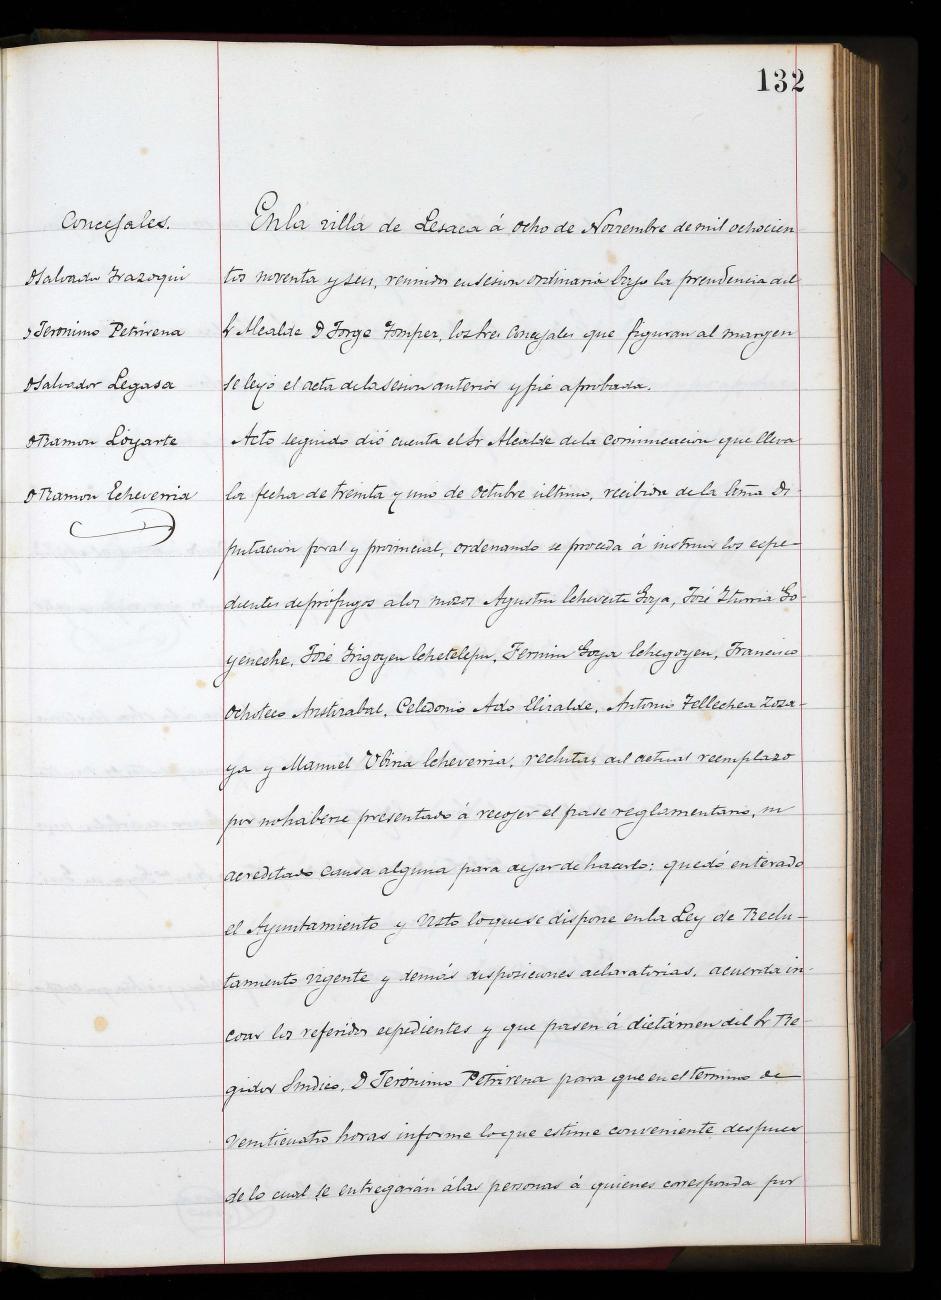 132
Concejales.
D Salvador Irazoqui
D Jerónimo Petrirena
D Salvador Legasa
D Ramon Loyarte
D Ramon Echeverria
En la villa de Lesaca á ocho de Noviembre de mil ochocien
tos noventa y seis, reunidos en sesion ordinaria bajo la presidencia del
Sr Alcalde D Jorge los Sres Concejales que figuran al margen
se leyó el acta de la sesion anterior y fué aprobada.
Acto seguido dió cuenta el Sr Alcalde de la comunicacion que lleva
la fecha de treinta y uno de Octubre último, recibida de la Exma Di-
putacion foral y provincial, ordenando se proceda á instruir los espe-
dientes de prófugos a los mozos Agustin Echeverte Goya, José Iturria Go-
yeneche, José Irigoyen Fermin Goya Echegoyen, Francisco
Ochoteco Celedonio Ado Elizalde, Antonio Tellechea Zoza-
ya y Manuel Ubiria Echeverria, reclutas del actual reemplazo
por no haberse presentado á recojer el pase reglamentario, ni
acreditado causa alguna para dejar de hacerlo: quedó enterado
el Ayuntamiento y visto lo que se dispone en la Ley de Reclu-
tamiento vigente y demás disposiciones aclaratorias, acuerda in-
coar los referidos espedientes y que pasen á dictámen del Sr Re-
gidor Síndico, D Jerónimo Petrirena para que en el termino de
veinticuatro horas informe lo que estime conveniente despues
de lo cual se entregarán á las personas á quienes corresponda por